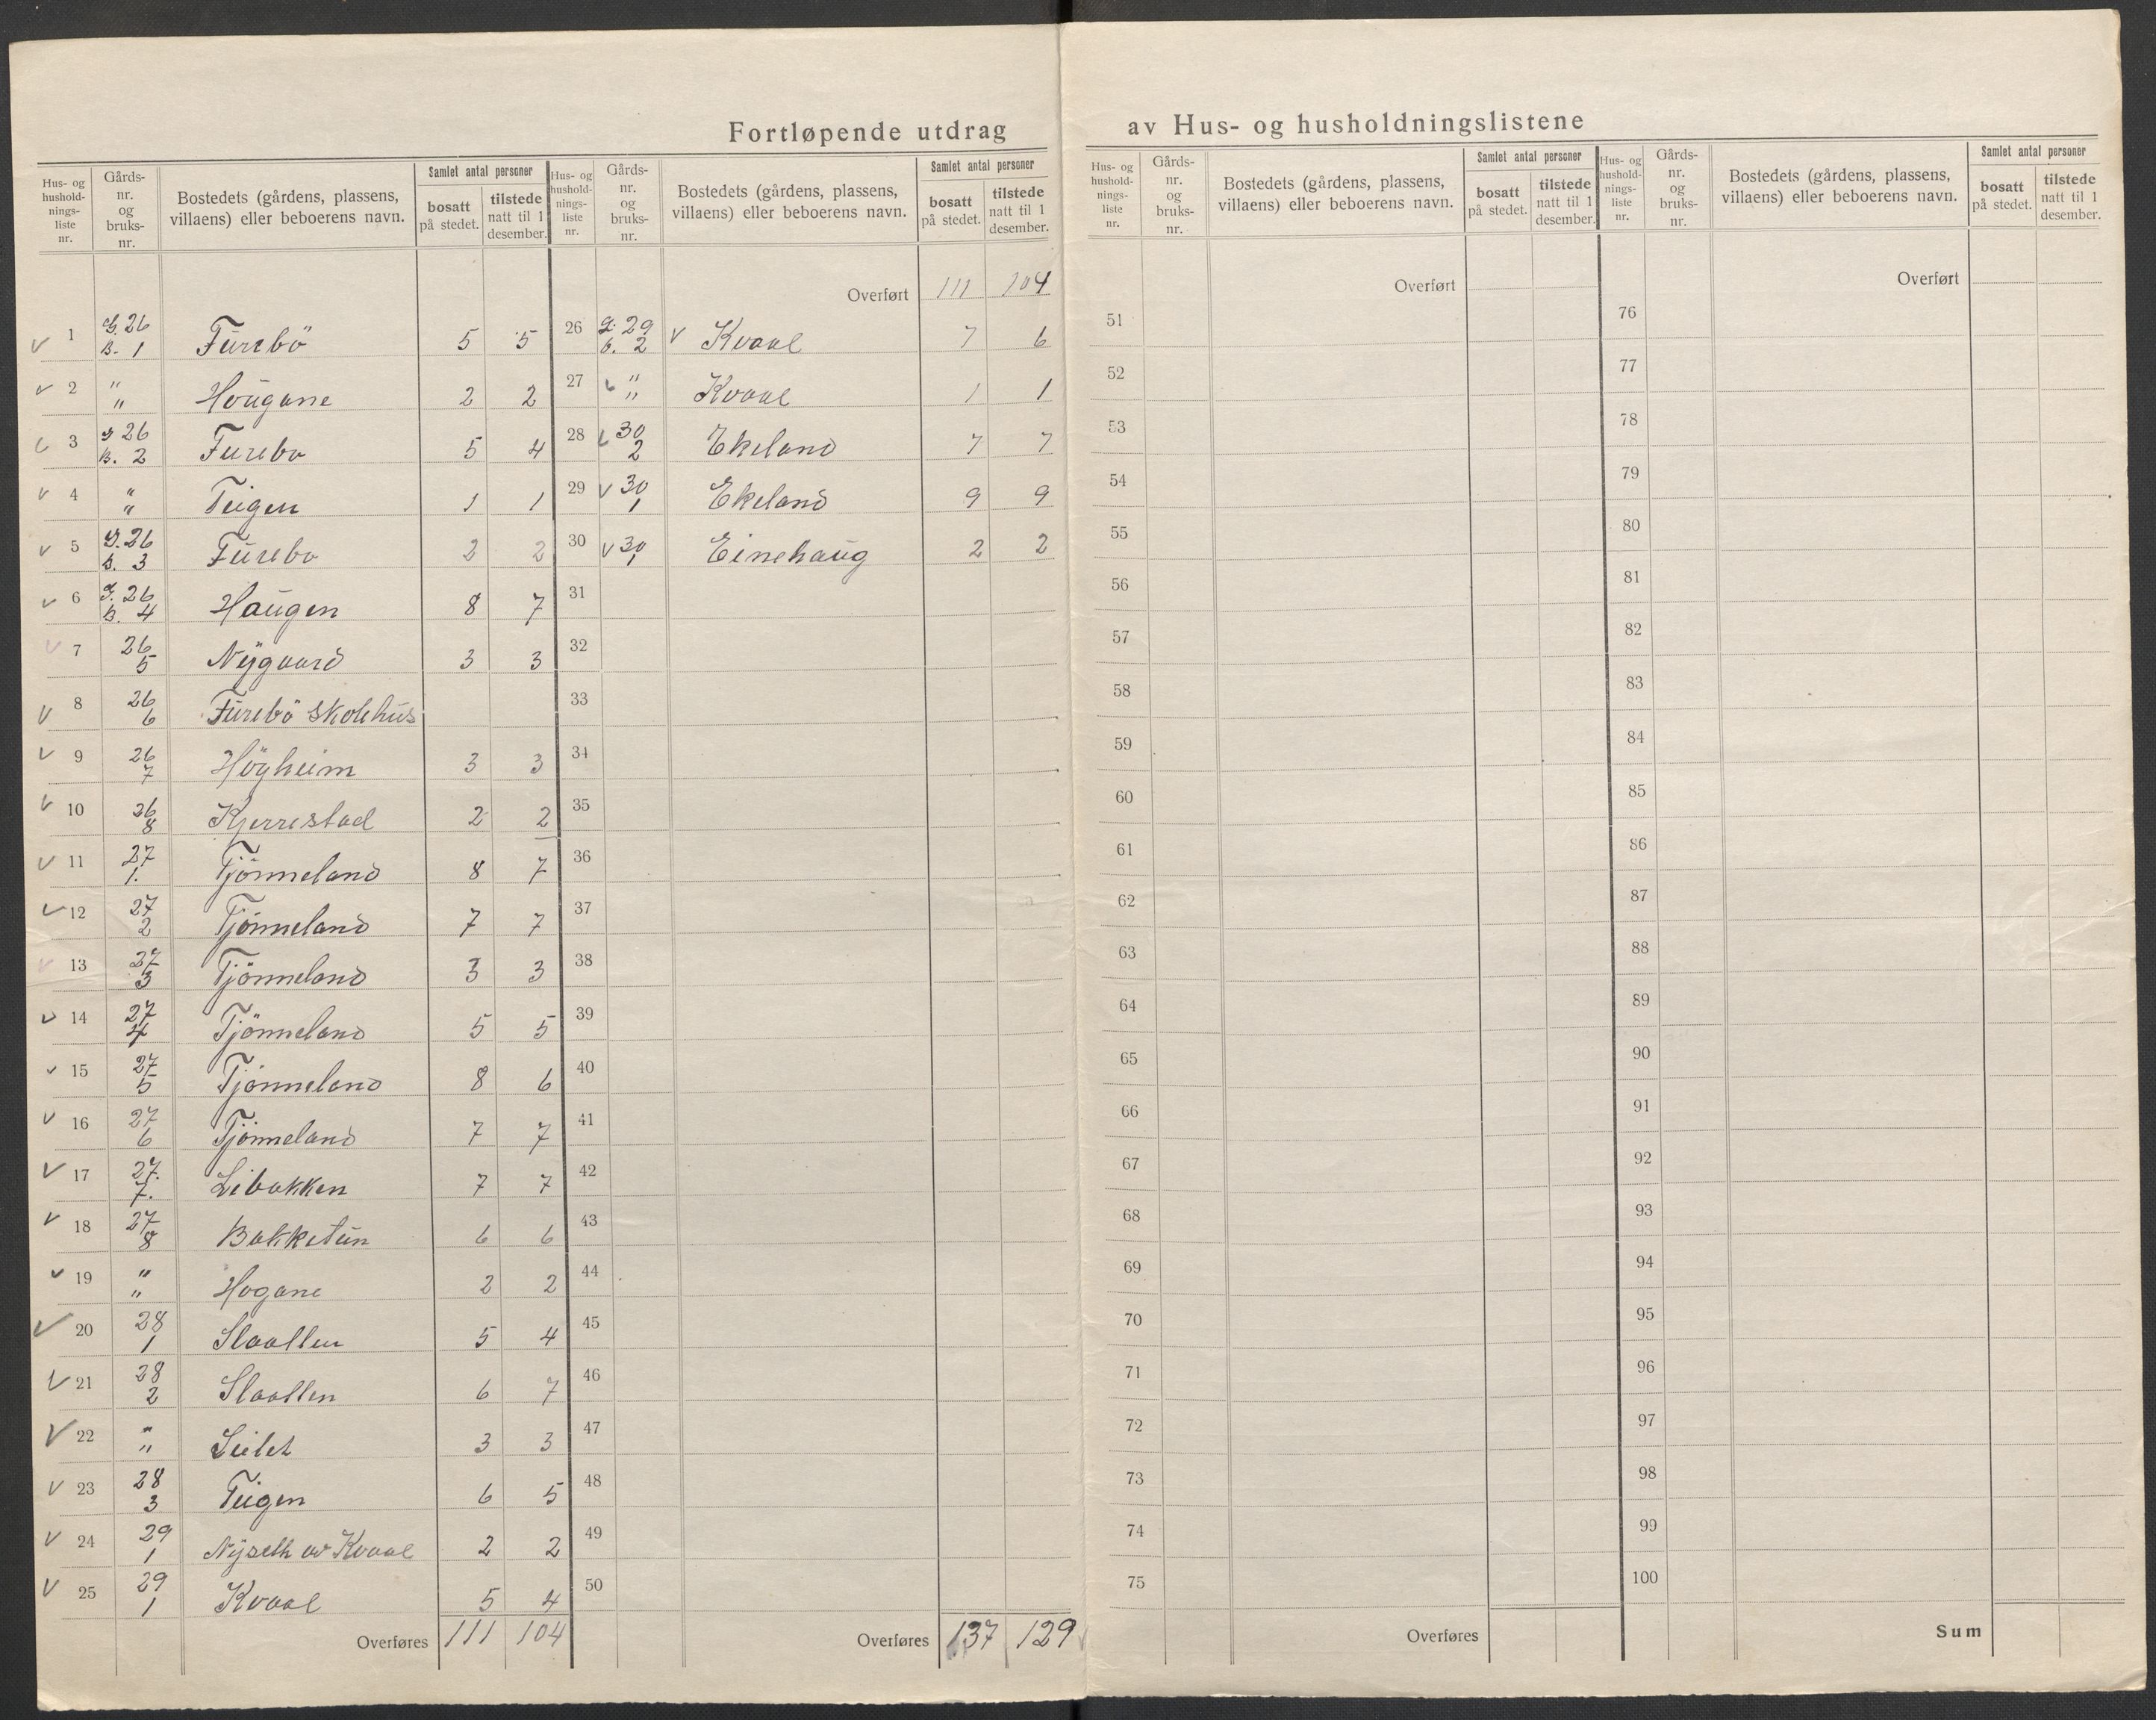 Fortløpende utdrag av Hus- og husholdningslistene
Hus- og hushold-nings-liste nr. | Gårds-nr. og bruks-nr. | Bostedets (gårdens, plassens, villaens) eller beboerens navn. | Samlet antal personer | bosatt på stedet. | tilstede natt til 1 desember.
1 | G. 26 B. 1 | Furebö | 5 | 5
2 | " " | Hougane | 2 | 2
3 | G 26 B. 2 | Furebo | 5 | 4
4 | " " | Teigen | 1 | 1
5 | G. 26 B. 3 | Furebo | 2 | 2
6 | G. 26 B. 4 | Haugen | 8 | 7
7 | 26 5 | Nygaard | 3 | 3
8 | 26 6 | Furebö skolehus
9 | 26 7 | Högheim | 3 | 3
10 | 26 8 | Kjerrestad | 2 | 2
11 | 27 1. | Tjönneland | 8 | 7
12 | 27 2 | Tjönneland | 7 | 7
13 | 27 3 | Tjönneland | 3 | 3
14 | 27 4 | Tjönneland | 5 | 5
15 | 27 5 | Tjönneland | 8 | 6
16 | 27 6 | Tjönneland | 7 | 7
17 | 27. 7. | Libakken | 7 | 7
18 | 27 8 | Bakketun | 6 | 6
19 | " " | Hogane | 2 | 2
20 | 28 1 | Slaatten | 5 | 4
21 | 28 2 | Slaatten | 6 | 7
22 | " " | Leitet | 3 | 3
23 | 28 3 | Teigen | 6 | 5
24 | 29 1 | Nyseth av Kvaal | 2 | 2
25 | 29 1 | Kvaal | 5 | 4
Overføres | 111 | 104
Hus- og hushold-nings-liste nr. | Gårds-nr. og bruks-nr. | Bostedets (gårdens, plassens, villaens) eller beboerens navn. | Samlet antal personer | bosatt på stedet. | tilstede natt til 1 desember.
Overført | 111 | 104
26 | g. 29 b. 2 | Kvaal | 7 | 6
27 | " " | Kvaal | 1 | 1
28 | 30 2 | Ekeland | 7 | 7
29 | 30 1 | Ekeland | 9 | 9
30 | 30 1 | Einehaug | 2 | 2
31
32
33
34
35
36
37
38
39
40
41
42
43
44
45
46
47
48
49
50
Overføres | 137 | 129
Hus- og hushold-nings-liste nr. | Gårds-nr. og bruks-nr. | Bostedets (gårdens, plassens, villaens) eller beboerens navn. | Samlet antal personer | bosatt på stedet. | tilstede natt til 1 desember.
Overført
51
52
53
54
55
56
57
58
59
60
61
62
63
64
65
66
67
68
69
70
71
72
73
74
75
Overføres
Hus- og hushold-nings-liste nr. | Gårds-nr. og bruks-nr. | Bostedets (gårdens, plassens, villaens) eller beboerens navn. | Samlet antal personer | bosatt på stedet. | tilstede natt til 1 desember.
Overført
76
77
78
79
80
81
82
83
84
85
86
87
88
89
90
91
92
93
94
95
96
97
98
99
100
Sum